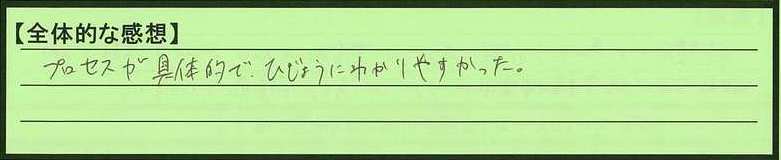 【全体的な感想】
プロセスが具体的で、ひじょうにわかりやすかった。